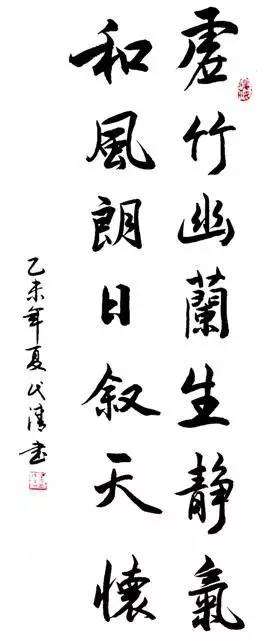 虚竹幽蘭生靜氣
和風朗日叙天懷
乙未年夏代清书